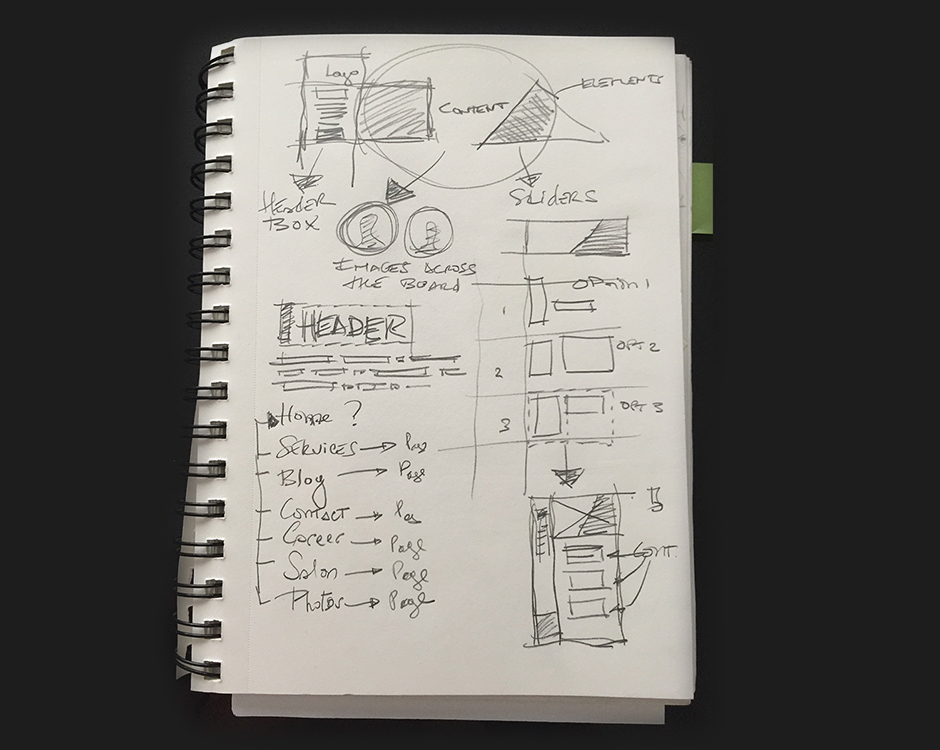 Logo
CONTENT
ELEMENTS
HEADER
BOX
SLIDERS
IMAGES ACROSS
THE BOARD
OPTION 1
1
HEADER
2
OPT 2
3
OPT 3
Home ?
SERVICES
Blog Page
CONTACT
Career Page
Salon Page
Photos Page
CONT.